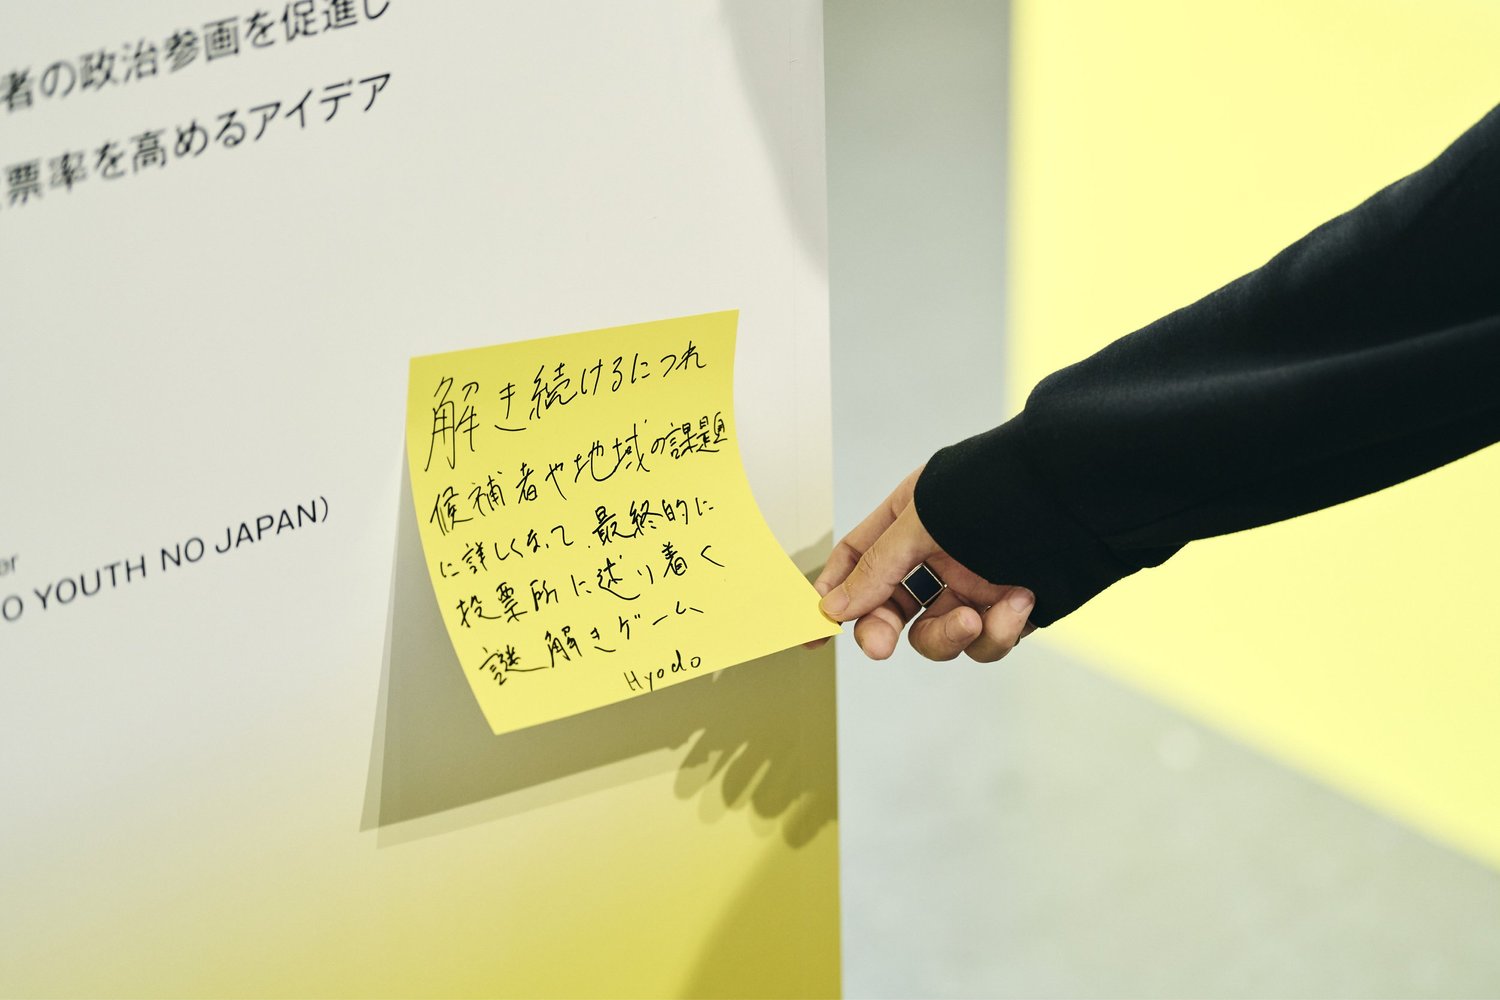 者の政治参画を促進し
票率を高めるアイデア
er
O YOUTH NO JAPAN)
解き続けるにつれ
候補者や地域の課題
に詳しくなって、最終的に
投票所に辿り着く
謎解きゲーム
Hyodo